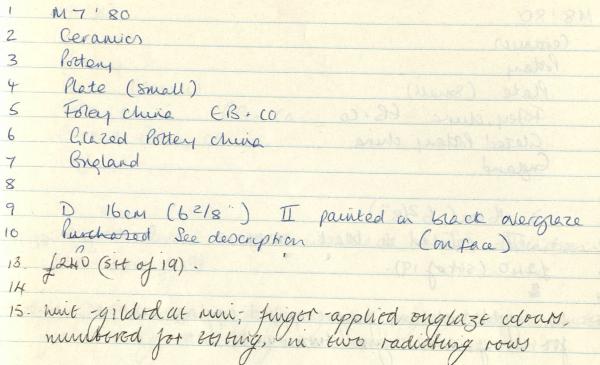 1 M7'80
2 Ceramics
3 Pottery
4 Plate (small)
5 Foley china EB.CO
6 Glazed Pottery china
7 England
8
9 D 16cm (6 2/8") II painted in black overglaze
10 Purchased See description (on face)
13. £240 (set of 19).
14
15. unit-gilded at rim; finger-applied onglaze colours,
numbered for testing, in two radiating rows